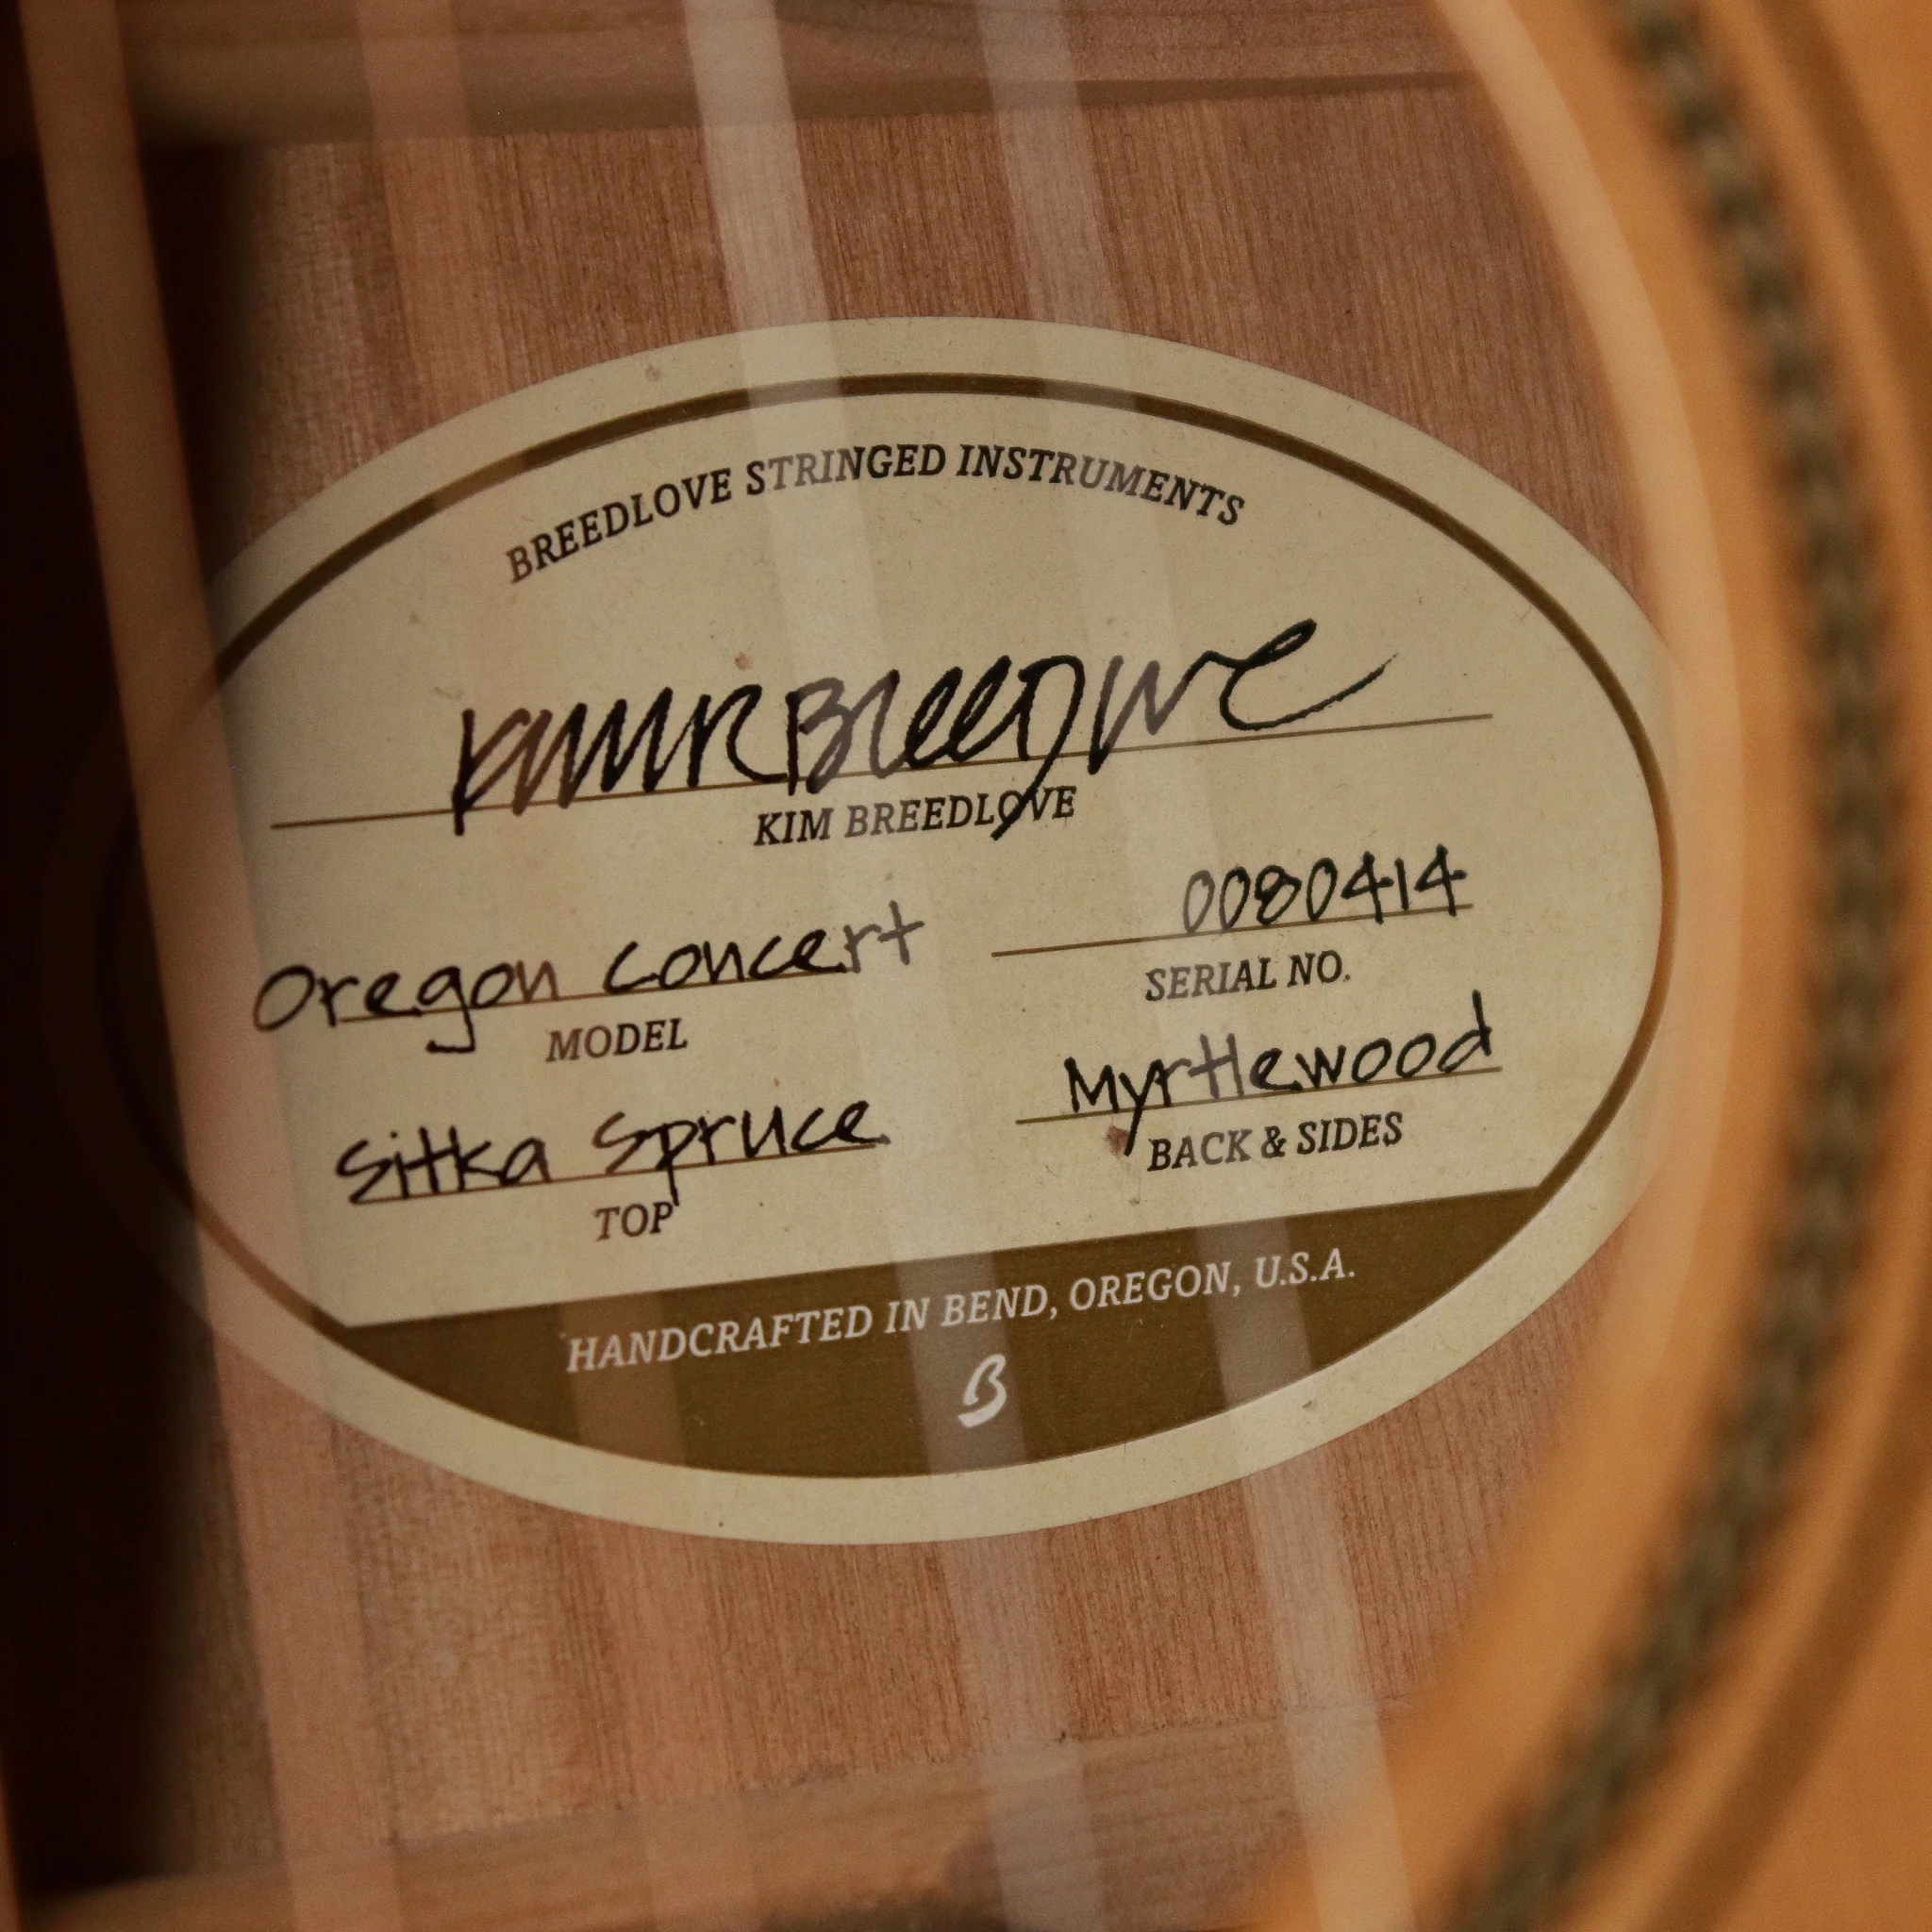 BREEDLOVE STRINGED INSTRUMENTS
Kim R Breedlove
KIM BREEDLOVE
Oregon Concert
MODEL
0080414
SERIAL NO.
Sitka Spruce
TOP
Myrtlewood
BACK & SIDES
HANDCRAFTED IN BEND, OREGON, U.S.A.
B